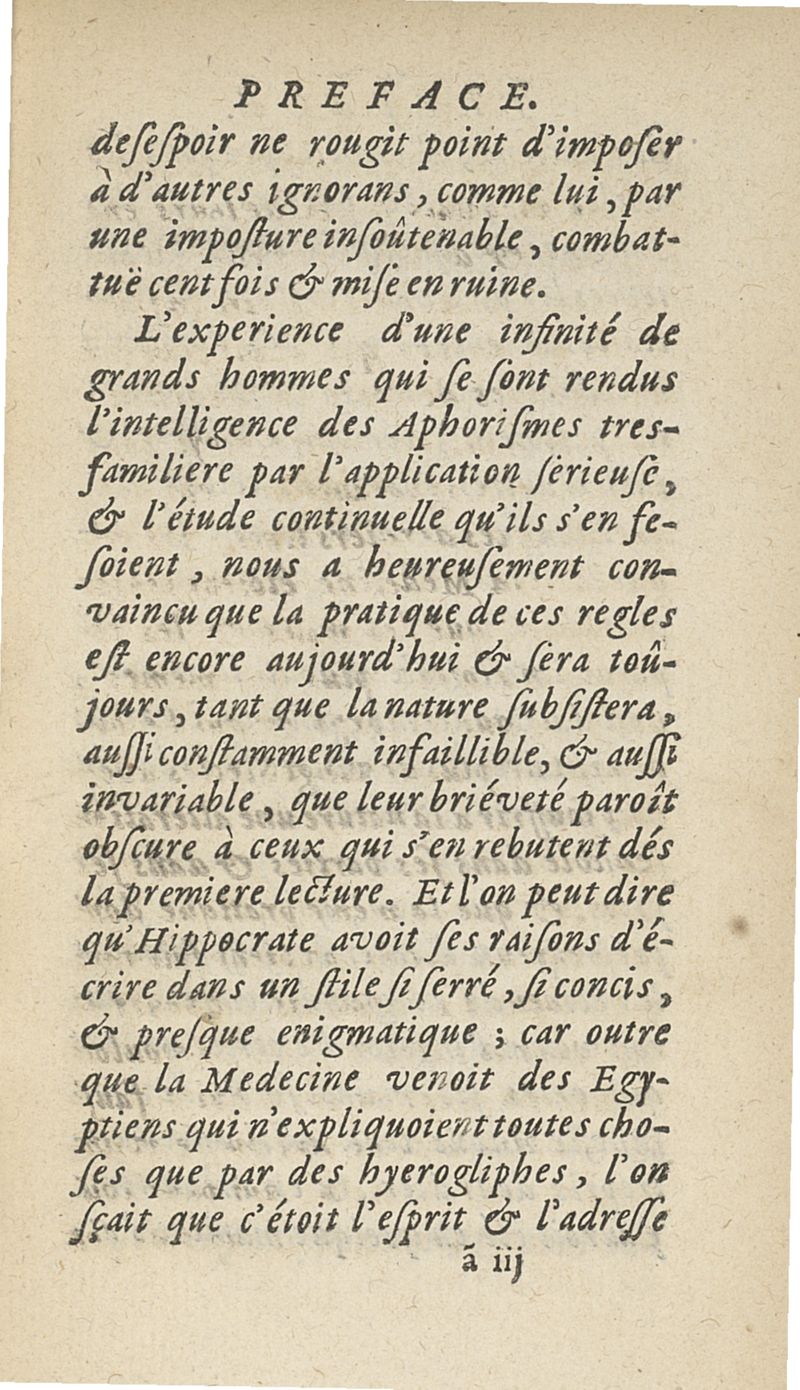 PREFACE.
deſeſpoir ne rougit point d'impoſer
à d'autres ignorans, comme lui, par
une impoſture inſoûtenable, combat-
tuë cent fois & miſe en ruine.
L'experience d'une infinité de
grands hommes qui ſe ſont rendus
l'intelligence des Aphoriſmes tres-
familiere par l'application ſerieuſe,
& l'étude continuelle qu'ils s'en fe-
ſoient, nous a heureuſement con-
vaincu que la pratique de ces regles
eſt encore aujourd'hui & ſera toû-
jours, tant que la nature ſubſiſtera,
auſſi conſtamment infaillible, & auſſi
invariable, que leur briéveté paroît
obſcure à ceux qui s'en rebutent dés
la premiere lecture. Et l'on peut dire
qu'Hippocrate avoit ſes raiſons d'é-
crire dans un ſtile ſi ſerré, ſi concis,
& preſque enigmatique ; car outre
que la Medecine venoit des Egy-
ptiens qui n'expliquoient toutes cho-
ſes que par des hyerogliphes, l'on
ſçait que c'étoit l'eſprit & l'adreſſe
ã iij